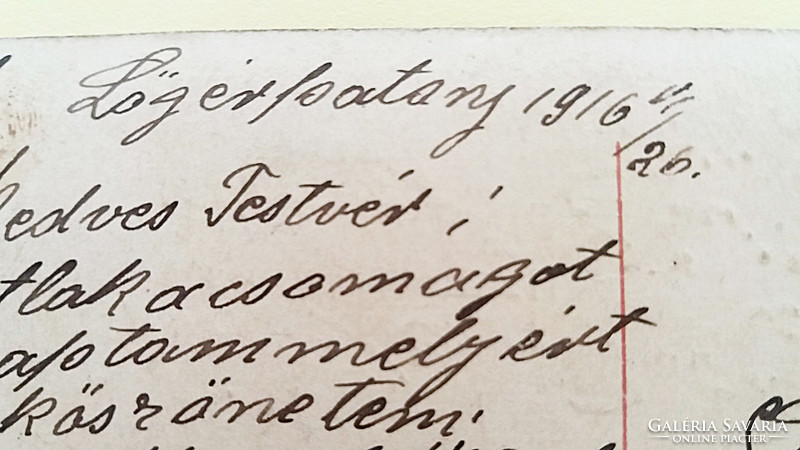 Lögérpatony 1916 4/26.
edves Testvér!
tlak a csomagot
aptam melyért
köszönetem.
GALÉRIA SAVARIA
ONLINE PIACTÉR